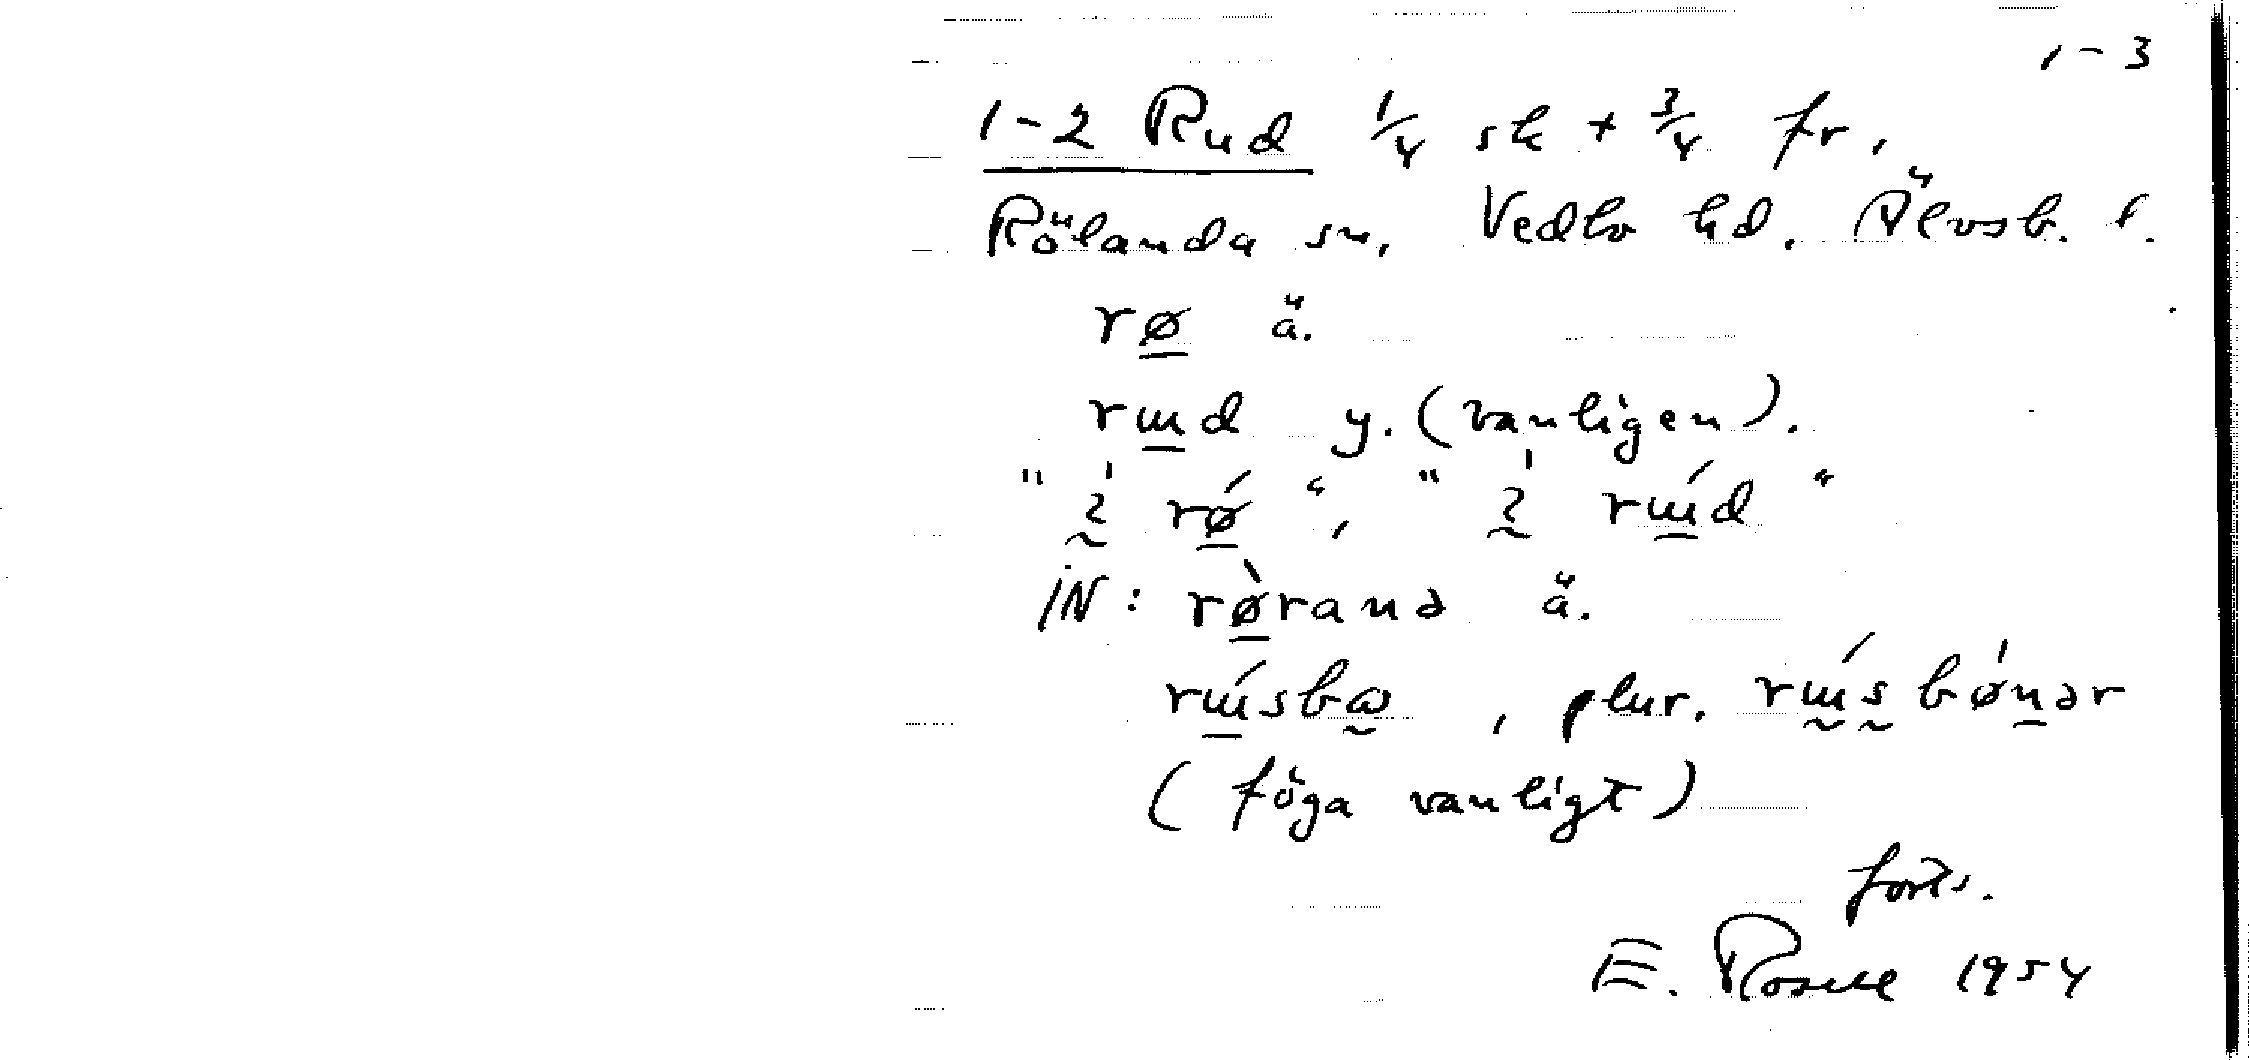 1-3
1-2 Rud 1/4 sk + 3/4 fr.
Rölanda sn. Vedbo hd. Älvsb. l.
rø̲ ä.
rɯ̲d y. (vanligen).
"ı̰́ rǿ̲", "ı̰́ rɯ̲́d"
IN: rø̲̀ranə ä.
rɯ̲́sbɷ̰, plur. rɯ̰́s̰bǿn̲ər
(föga vanligt)
forts.
E. Rosell 1954